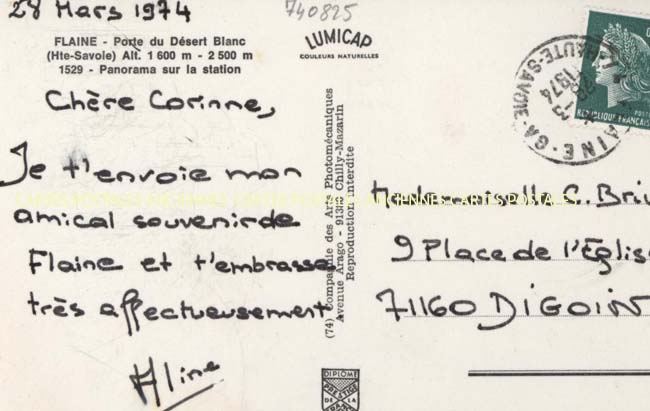 28 Mars 1974
740825
FLAINE - Porte du Désert Blanc
(Hte-Savoie) Alt. 1 600 m - 2 500 m
1529 - Panorama sur la station
LUMICAP
COULEURS NATURELLES
Chère Corinne,
Je t'envoie mon
amical souvenir de
Flaine et t'embrasse
très affectueusement
Aline
(74) Compagnie des Arts Photomécaniques
Avenue Arago - 91380 Chilly-Mazarin
Reproduction interdite
DIPLÔME
PRESTIGE
DE LA
FRANCE
1974
HAUTE-SAVOIE
POSTES
REPUBLIQUE FRANCAISE
Mademoiselle C. Bri
9 Place de l'Église
71160 DIGOIN